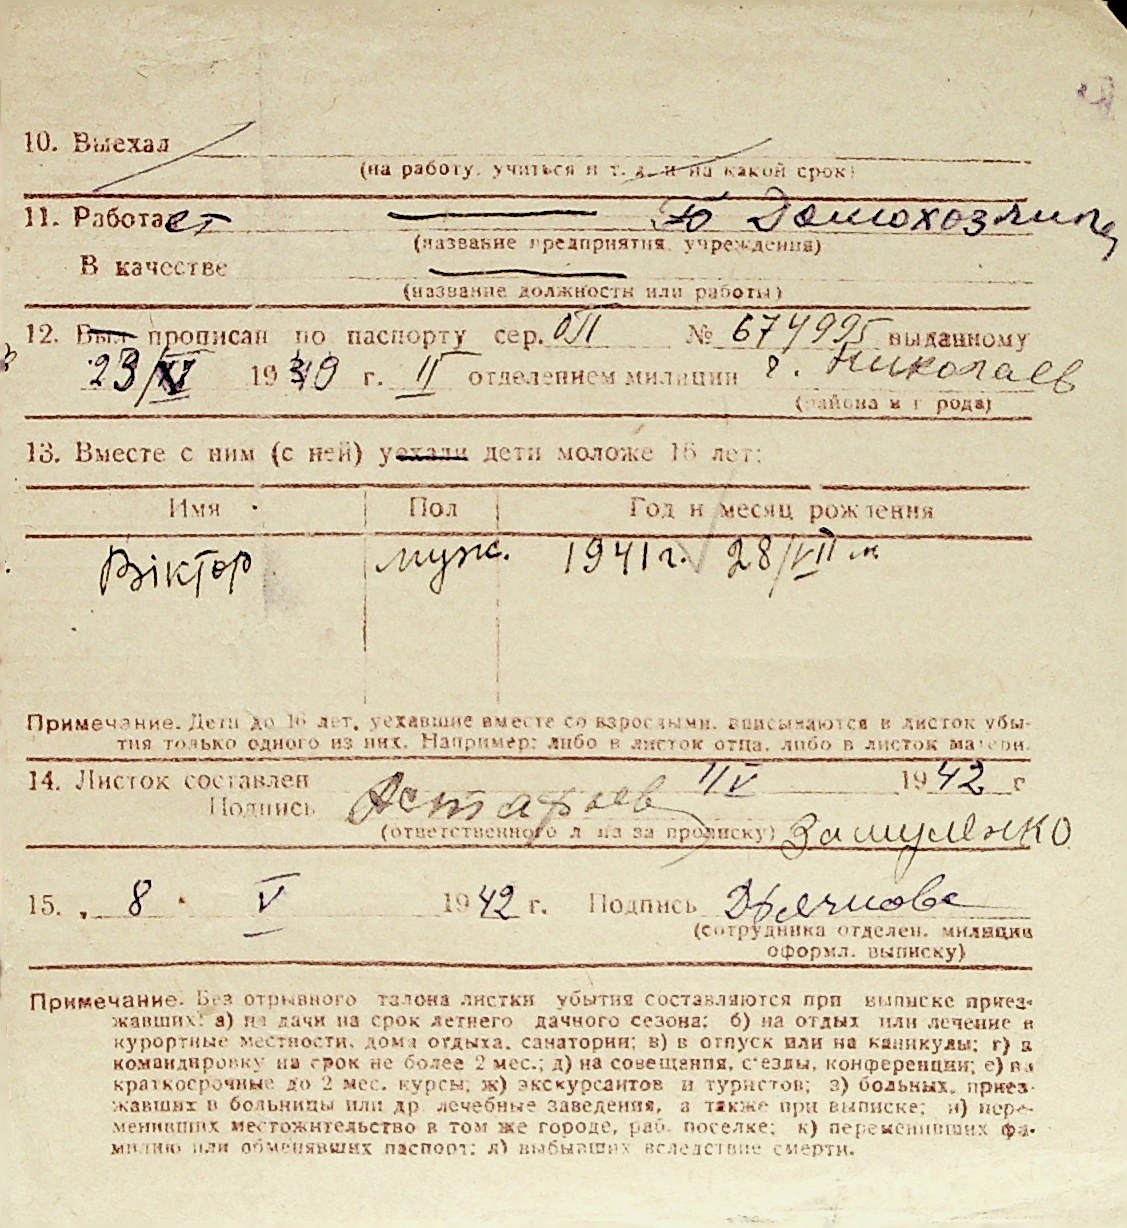 10. Выехал
(на работу, учиться и т. д. и на какой срок)
11. Работает Домохозяина
(название предприятия, учреждения)
В качестве
(название должности или работы)
12. Был прописан по паспорту сер. ОП № 674995 выданному
23/XI 1940 г. II отделением милиции г. Николаев
(района и города)
13. Вместе с ним (с ней) уехали дети моложе 16 лет:
Имя Пол Год и месяц рождения
Віктор муж. 1941 г. 28/VII м
Примечание. Дети до 16 лет, уехавшие вместе со взрослыми, вписываются в листок убы-
тия только одного из них. Например: либо в листок отца, либо в листок матери.
14. Листок составлен V 1942 г
Подпись Астафьев
(ответственного лица за прописку) Замуленко
15. 8 V 1942 г. Подпись Дьячкова
(сотрудника отделен. милиции
оформл. выписку)
Примечание. Без отрывного талона листки убытия составляются при выписке приез-
жавших: а) на дачи на срок летнего дачного сезона; б) на отдых или лечение в
курортные местности, дома отдыха, санатории; в) в отпуск или на каникулы; г) в
командировку на срок не более 2 мес.; д) на совещания, с'езды, конференции; е) на
краткосрочные до 2 мес. курсы; ж) экскурсантов и туристов; з) больных, приез-
жавших в больницы или др. лечебные заведения, а также при выписке; и) пере-
менивших местожительство в том же городе, раб. поселке; к) переменивших фа-
милию или обменявших паспорт; л) выбывших вследствие смерти.